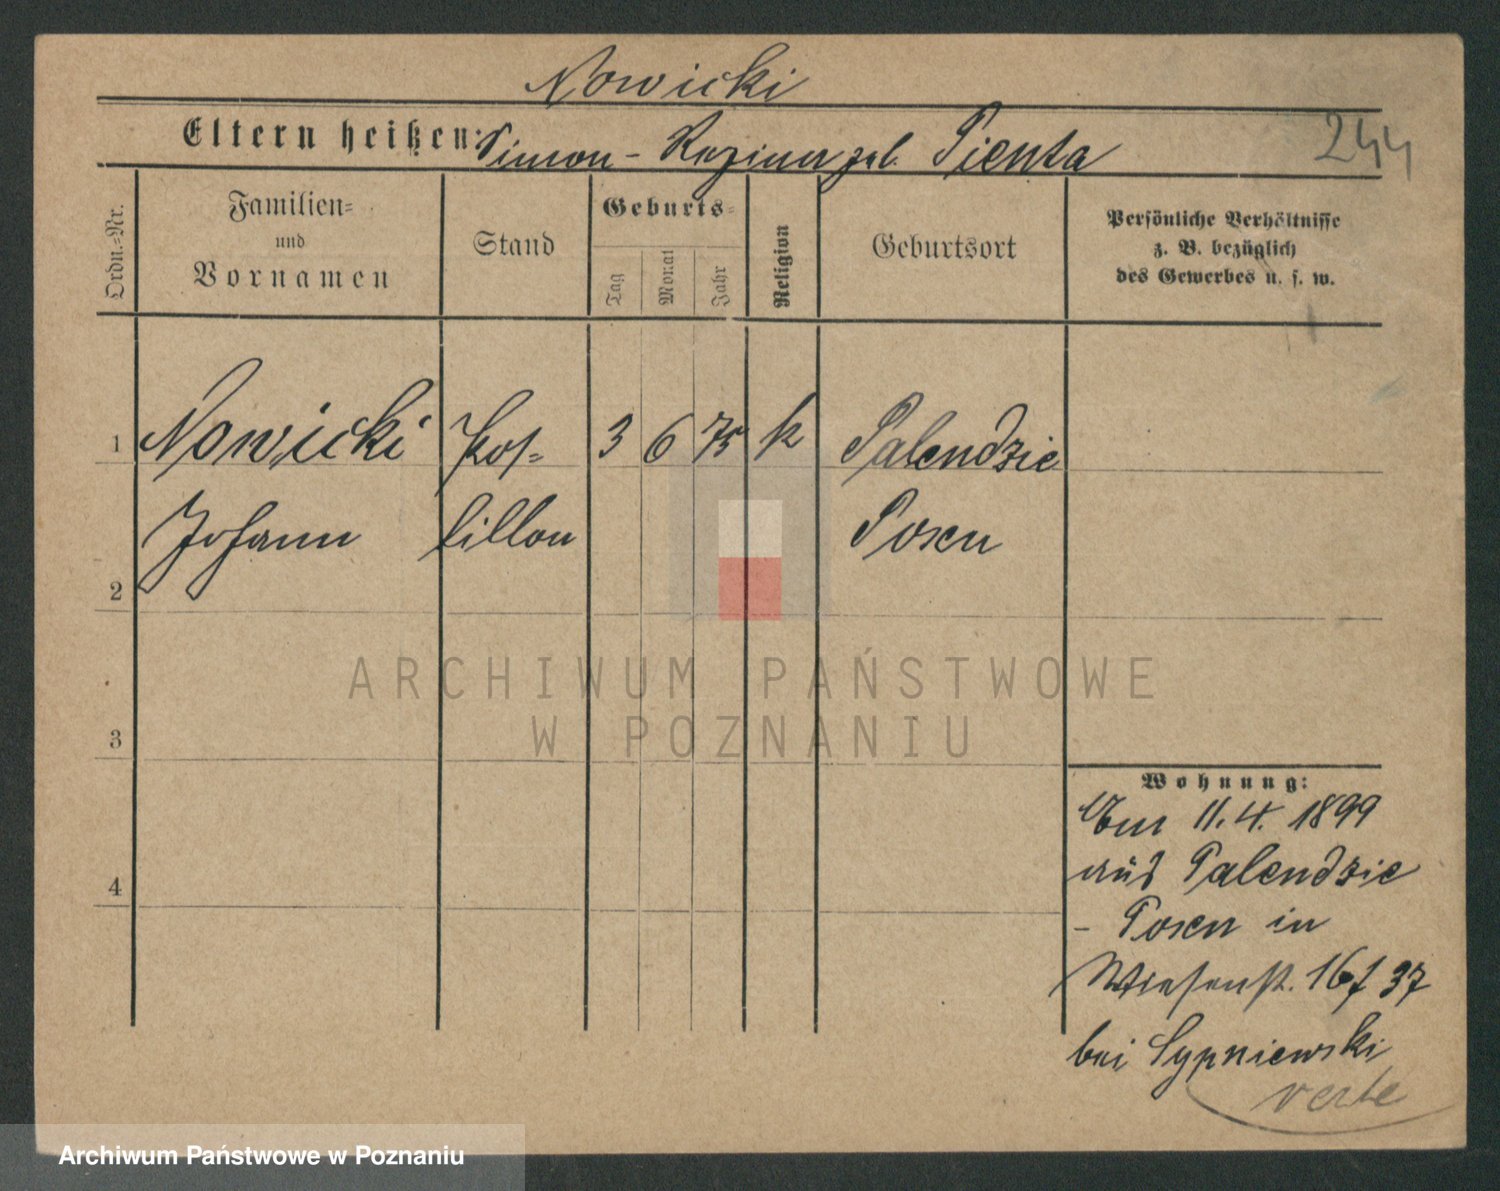 Nowicki
Eltern heißen: Simon - Regina geb. Pienta
244
Ordn.=Nr.
Familien=
und
Vornamen
Stand
Geburts=
Tag
Monat
Jahr
Religion
Geburtsort
Persönliche Verhältnisse
z. B. bezüglich
des Gewerbes u. s. w.
1 Nowicki Pos= 3 6 75 k Palendzie
Johann tillon Posen
2
3
4
Wohnung:
Am 11.4.1899
aus Palendzie
- Posen in
16/37
bei Sypniewski
verte
ARCHIWUM PAŃSTWOWE
W POZNANIU
Archiwum Państwowe w Poznaniu